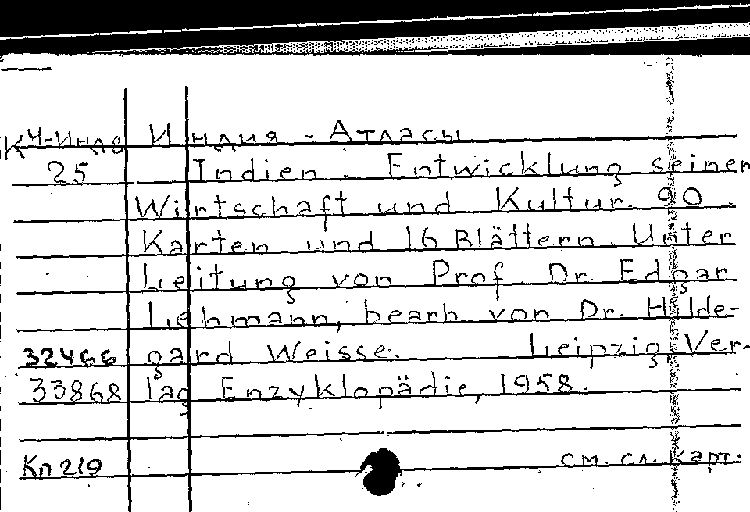 К4-Инд8 Индия - Атласы
25 Indien. Entwicklung seiner
Wirtschaft und Kultur. 90
Karten und 16 Blättern. Unter
Leitung von Prof. Dr. Edgar
Lehmann, bearb. von Dr. Hilde-
32466 gard Weisse. Leipzig, Ver-
33868 lag Enzyklopädie, 1958.
Кп 219 см. сл. карт.